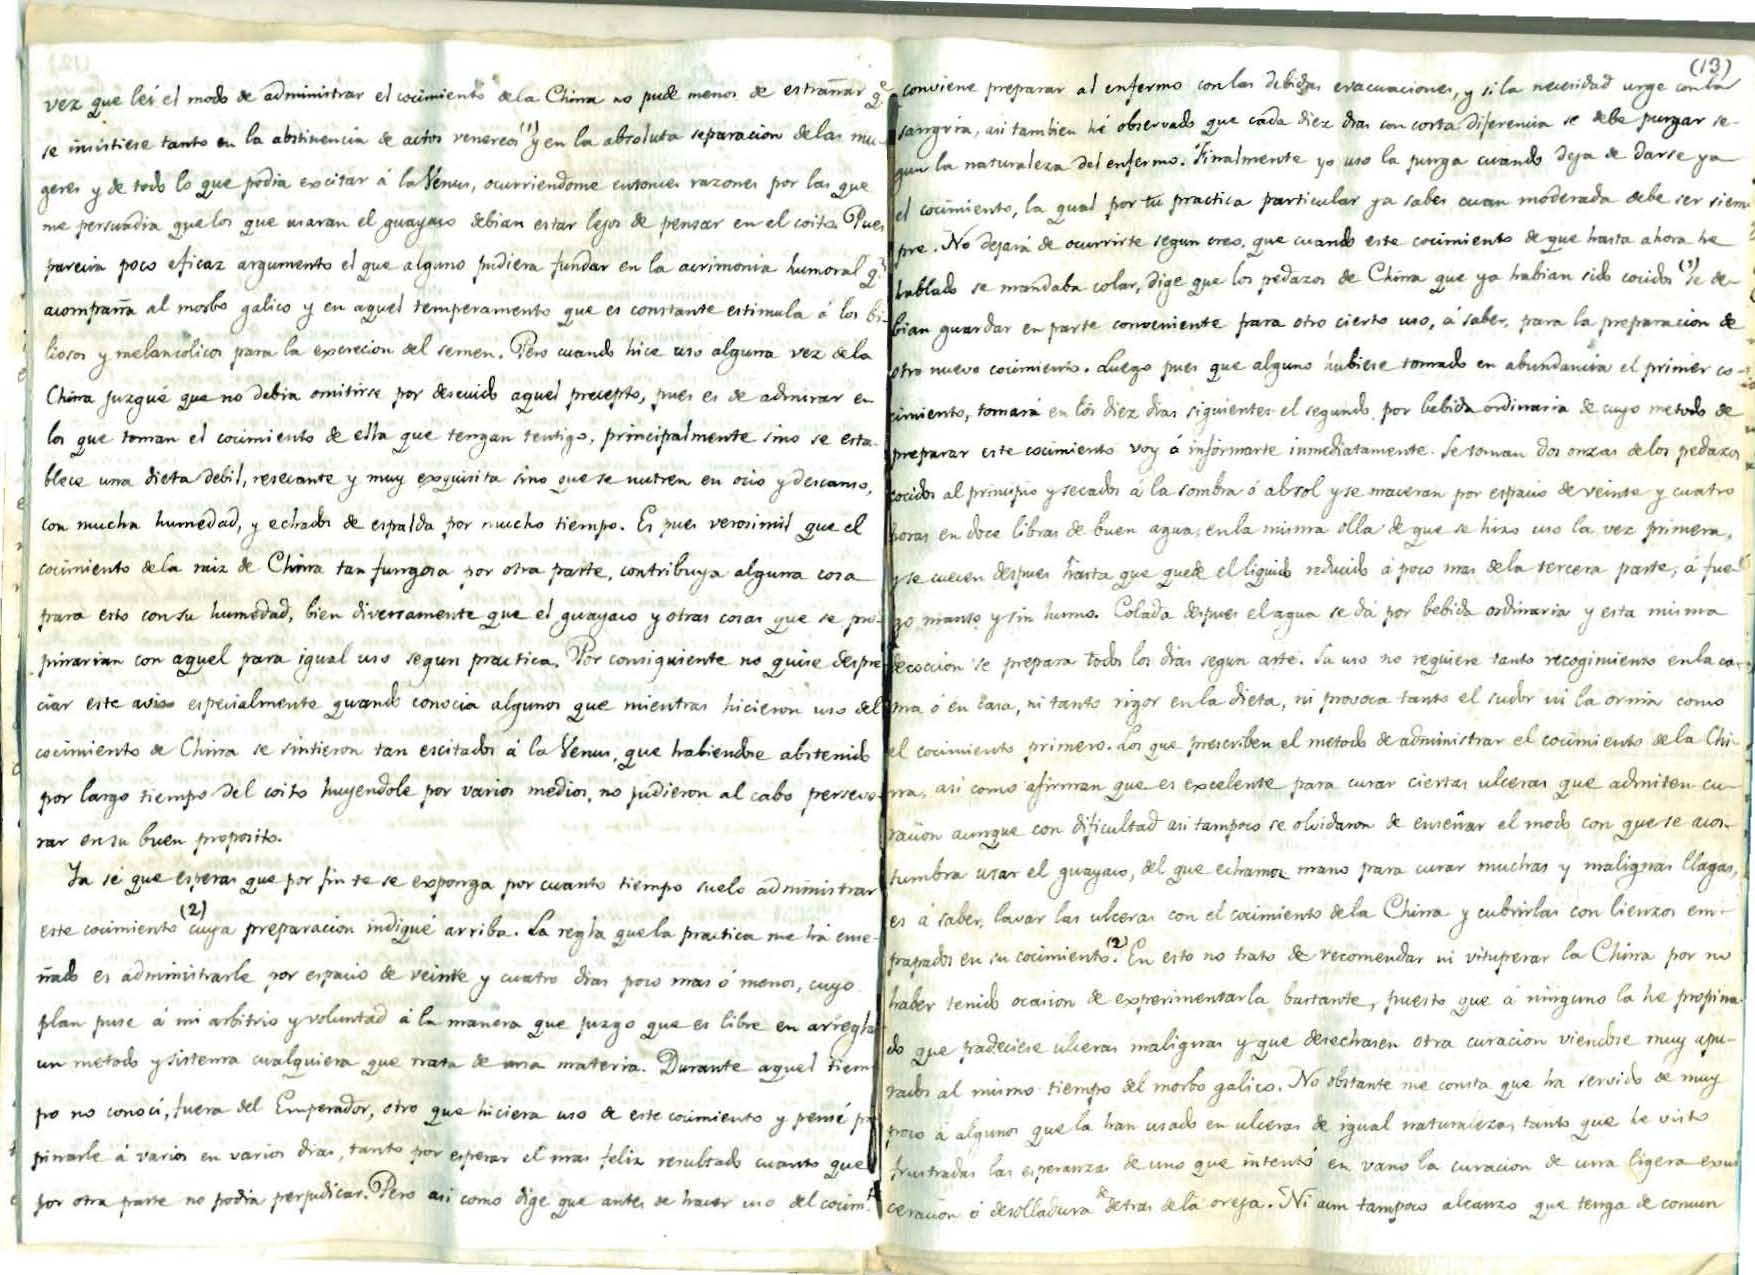 vez que leí el modo de administrar el cocimiento de la China no pude menos de estrañar q.e
se insistiese tanto en la abstinencia de actos venereos (1) y en la absoluta separacion de las mu-
geres y de todo lo que podia excitar á la Venus, ocurriendome entonces razones por las que
me persuadia que los que usaran el guayaco debian estar lejos de pensar en el coito. Pues
parecia poco eficaz argumento el que alguno pudiera fundar en la acrimonia humoral q.e
acompaña al morbo galico y en aquel temperamento que es constante estimula á los bi-
liosos y melancolicos para la excrecion del semen. Pero cuando hice uso alguna vez de la
China juzgué que no debia omitirse por descuido aquel precepto, pues es de admirar en
los que toman el cocimiento de ella que tengan tentigo, principalmente sino se esta-
blece una dieta debil, resecante y muy exquisita sino que se nutren en ocio y descanso,
con mucha humedad, y echados de espalda por mucho tiempo. Es pues verosimil que el
cocimiento de la raiz de China tan fungosa por otra parte, contribuya alguna cosa
para esto con su humedad, bien diversamente que el guayaco y otras cosas que se pro-
pinarian con aquel para igual uso segun practica. Por consiguiente no quise despre
ciar este aviso especialmente quando conocia algunos que mientras hicieron uso del
cocimiento de China se sintieron tan escitados á la Venus, que habiendose abstenido
por largo tiempo del coito huyendole por varios medios, no pudieron al cabo perseve-
rar en su buen proposito.
Ya sé que esperas que por fin te se exponga por cuanto tiempo suelo administrar
este cocimiento (2) cuya preparacion indiqué arriba. La regla que la practica me há ense-
ñado es administrarle por espacio de veinte y cuatro dias poco mas ó menos, cuyo
plan puse á mi arbitrio y voluntad á la manera que juzgo que es libre en arregla
un metodo y sistema cualquiera que trata de una materia. Durante aquel tiem
po no conocí, fuera del Emperador, otro que hiciera uso de este cocimiento y pensé pro
pinarle á varios en varios dias, tanto por esperar el mas feliz resultado cuanto que
por otra parte no podia perjudicar. Pero asi como dige que antes de hacer uso del cocim.to
(13)
conviene preparar al enfermo con las debidas evacuaciones, y si la necesidad urge con la
sangria, asi tambien hé observado que cada diez dias con corta diferencia se debe purgar se-
gun la naturaleza del enfermo. Finalmente yo uso la purga cuando deja de darse ya
el cocimiento, la qual por tu practica particular ya sabes cuan moderada debe ser siem
pre. No dejará de ocurrirte segun creo, que cuando este cocimiento de que hasta ahora he
hablado se mandaba colar, dige que los pedazos de China que ya habian sido cocidos (1) se de-
bian guardar en parte conveniente para otro cierto uso, á saber, para la preparacion de
otro nuevo cocimiento. Luego pues que alguno hubiese tomado en abundancia el primer co-
cimiento, tomará en los diez dias siguientes el segundo, por bebida ordinaria de cuyo metodo de
preparar este cocimiento voy á informarte inmediatamente. Se toman dos onzas de los pedazos
cocidos al principio y secados á la sombra ó al sol y se maceran por espacio de veinte y cuatro
horas en doce libras de buen agua, en la misma olla de que se hizo uso la vez primera,
y se cuecen despues hasta que quede el liquido reducido á poco mas de la tercera parte, á fue-
go manso y sin humo. Colada despues el agua se dá por bebida ordinaria y esta misma
decoccion se prepara todos los dias segun arte. Su uso no requiere tanto recogimiento en la ca-
ma ó en casa, ni tanto rigor en la dieta, ni provoca tanto el sudor ni la orina como
el cocimiento primero. Los que prescriben el metodo de administrar el cocimiento de la Chi-
na, asi como afirman que es excelente para curar ciertas ulceras que admiten cu-
racion aunque con dificultad asi tampoco se olvidaron de enseñar el modo con que se acos-
tumbra usar el guayaco, del que echamos mano para curar muchas y malignas llagas,
es á saber, lavar las ulceras con el cocimiento de la China y cubrirlas con lienzos em-
papados en su cocimiento. (2) En esto no trato de recomendar ni vituperar la China por no
haber tenido ocasion de experimentarla bastante, puesto que á ninguno la he propina-
do que padeciese ulceras malignas y que desechasen otra curacion viendose muy apu-
rados al mismo tiempo del morbo galico. No obstante me consta que ha servido de muy
poco á algunos que la han usado en ulceras de igual naturaleza, tanto que he visto
frustradas las esperanzas de uno que intentó en vano la curacion de una ligera exul
ceracion ó desolladura detras de la oreja. Ni aun tampoco alcanzo que tenga de comun